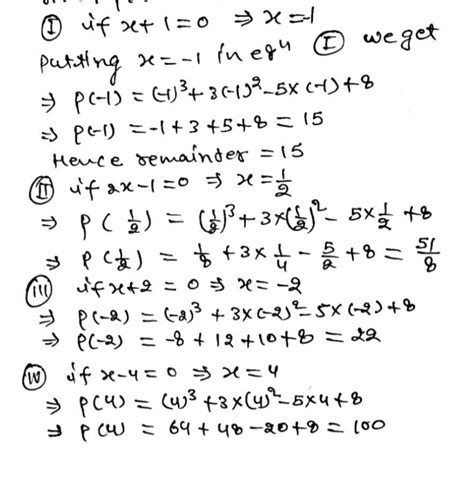 (I) if x+1=0 ⇒ x=-1
putting x=-1 in eqⁿ (I) we get
⇒ P(-1) = (-1)³+3(-1)²-5x(-1)+8
⇒ P(-1) = -1+3+5+8 = 15
Hence remainder = 15
(II) if 2x-1=0 ⇒ x=1/2
⇒ P(1/2) = (1/2)³+3x(1/2)²-5x1/2+8
⇒ P(1/2) = 1/8+3x1/4-5/2+8 = 51/8
(III) if x+2=0 ⇒ x=-2
⇒ P(-2) = (-2)³+3x(-2)²-5x(-2)+8
⇒ P(-2) = -8+12+10+8 = 22
(IV) if x-4=0 ⇒ x=4
⇒ P(4) = (4)³+3x(4)²-5x4+8
⇒ P(4) = 64+48-20+8 = 100